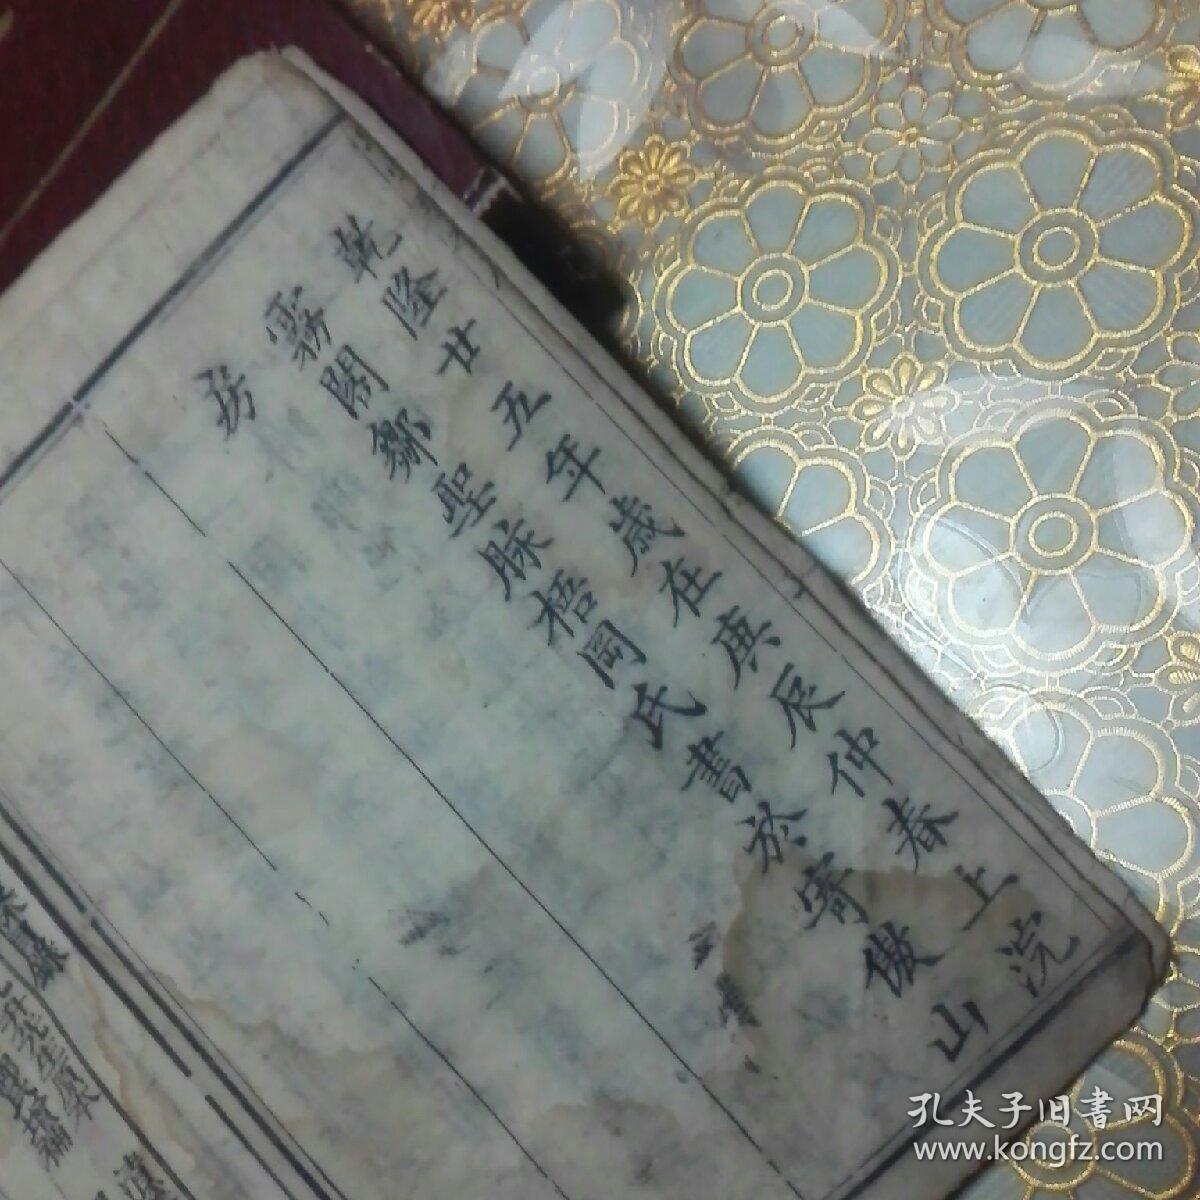 乾隆廿五年歲在庚辰仲春上浣
霧閣鄒聖脉梧岡氏書於寄傲山
房
孔夫子旧書网
www.kongfz.com